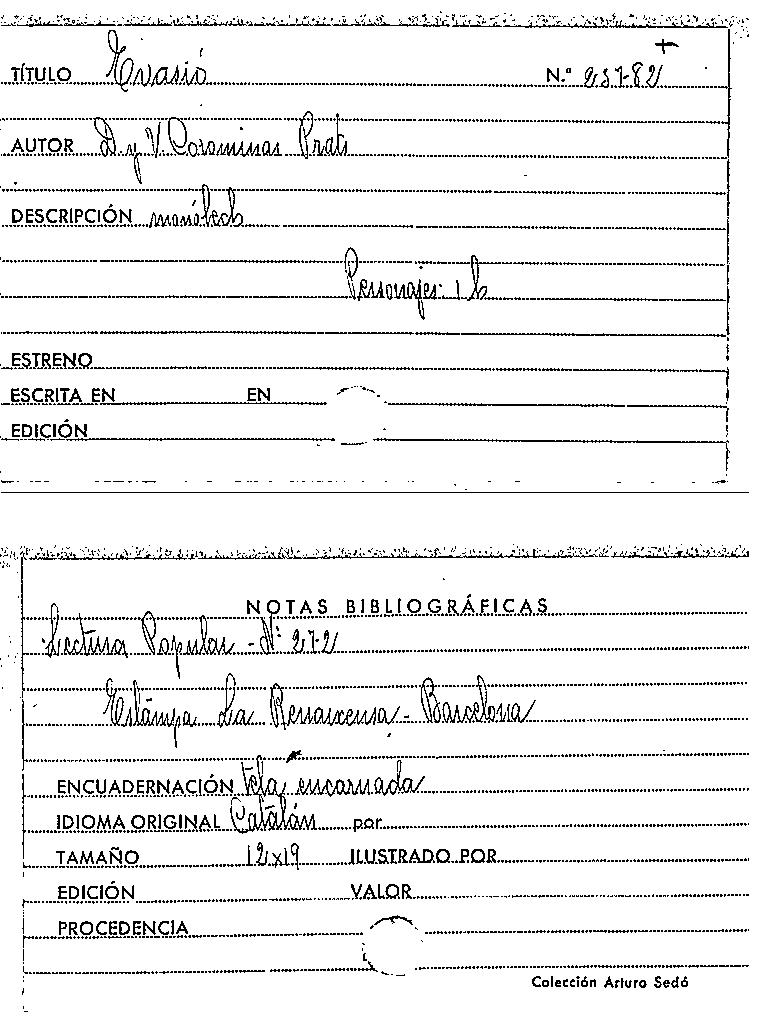 +
TÍTULO Evasió N.º 237-82
AUTOR D. y V. Corominas Prats
DESCRIPCIÓN monólech
Personajes: 1 h
ESTRENO
ESCRITA EN EN
EDICIÓN
NOTAS BIBLIOGRÁFICAS
Lectura Popular - Nº 272
Estampa La Renaixensa - Barcelona
ENCUADERNACIÓN tela encarnada
IDIOMA ORIGINAL Catalán por
TAMAÑO 12x19 ILUSTRADO POR
EDICIÓN VALOR
PROCEDENCIA
Colección Arturo Sedó